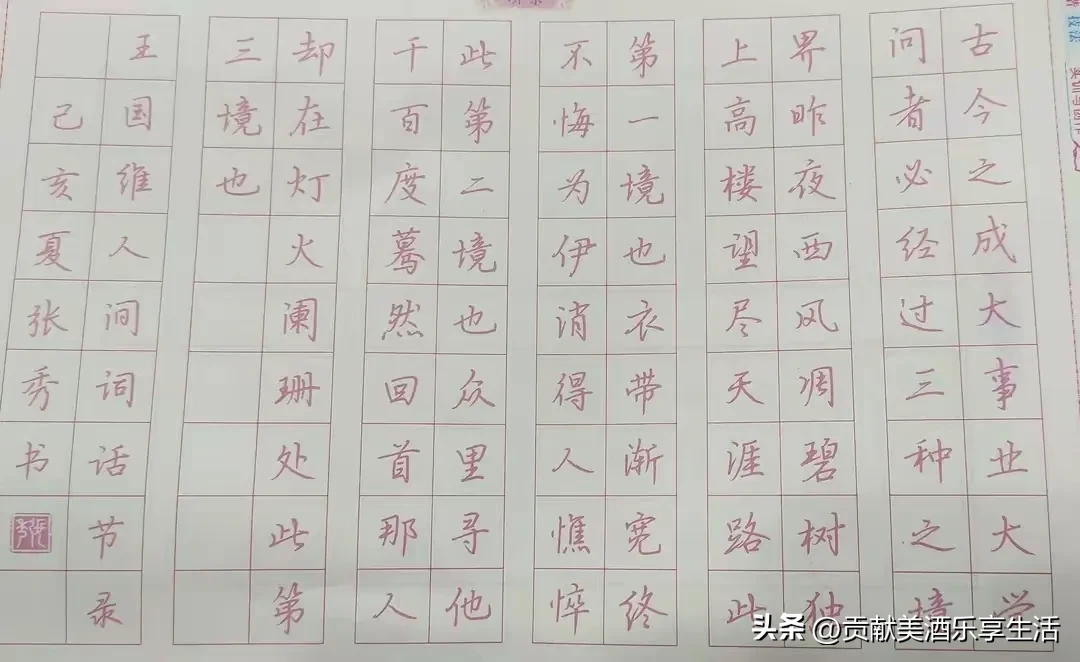 古今之成大事业大学
问者必经过三种之境
界昨夜西风凋碧树独
上高楼望尽天涯路此
第一境也衣带渐宽终
不悔为伊消得人憔悴
此第二境也众里寻他
千百度蓦然回首那人
却在灯火阑珊处此第
三境也
王国维人间词话节录
己亥夏张秀书
技法
头条 @贡献美酒乐享生活